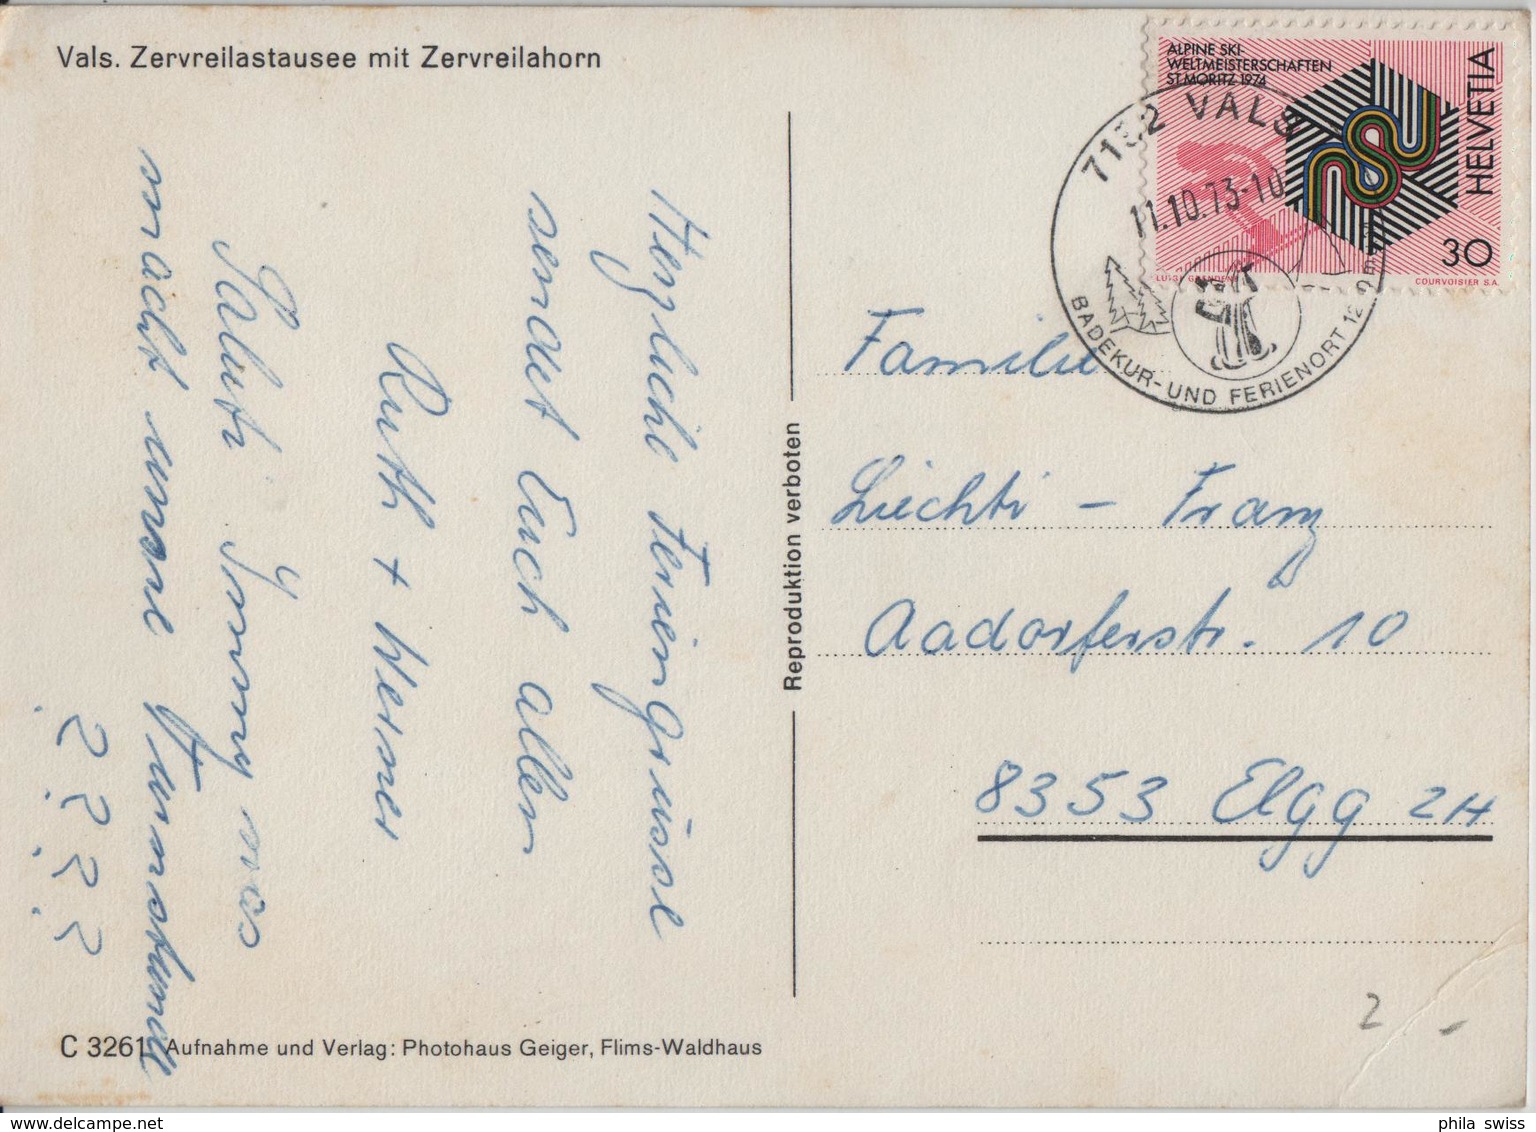 Vals. Zervreilastausee mit Zervreilahorn
Herzliche Feriengrüsse
sendet Euch allen
Ruth + Werner
Saluti Jonny was
macht unsre Turnstunde
? ? ?
C 3261 Aufnahme und Verlag: Photohaus Geiger, Flims-Waldhaus
Reproduktion verboten
ALPINE SKI-
WELTMEISTERSCHAFTEN
ST.MORITZ 1974
HELVETIA
30
COURVOISIER S.A.
7132 VALS
11.10.73-10
BADEKUR- UND FERIENORT
Familie
Liechti - Franz
Aadorferstr. 10
8353 Elgg ZH
2 -
www.delcampe.net
phila swiss